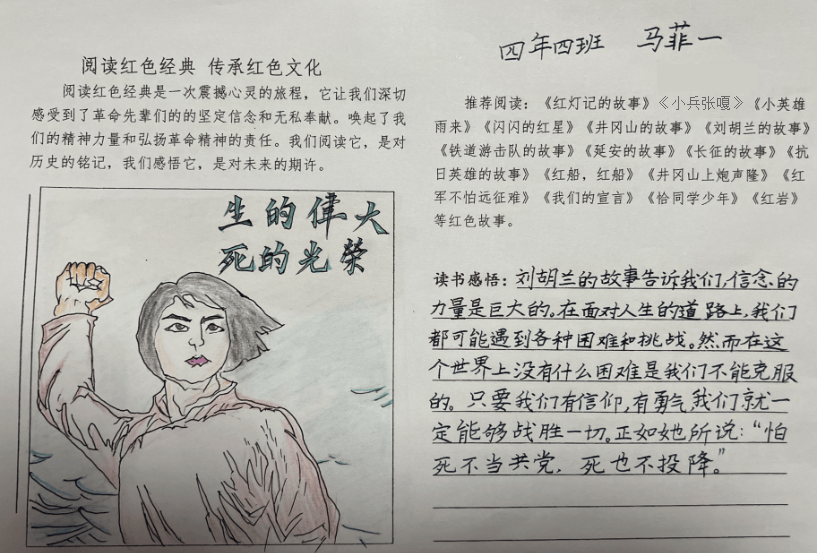 阅读红色经典 传承红色文化
阅读红色经典是一次震撼心灵的旅程，它让我们深切
感受到了革命先辈们的的坚定信念和无私奉献。唤起了我
们的精神力量和弘扬革命精神的责任。我们阅读它，是对
历史的铭记，我们感悟它，是对未来的期许。
生的偉大
死的光荣
四年四班 马菲一
推荐阅读：《红灯记的故事》《小兵张嘎》《小英雄
雨来》《闪闪的红星》《井冈山的故事》《刘胡兰的故事》
《铁道游击队的故事》《延安的故事》《长征的故事》《抗
日英雄的故事》《红船，红船》《井冈山上炮声隆》《红
军不怕远征难》《我们的宣言》《恰同学少年》《红岩》
等红色故事。
读书感悟：刘胡兰的故事告诉我们，信念的
力量是巨大的。在面对人生的道路上，我们
都可能遇到各种困难和挑战。然而在这
个世界上没有什么困难是我们不能克服
的。只要我们有信仰，有勇气，我们就一
定能够战胜一切。正如她所说：“怕
死不当共党，死也不投降。”